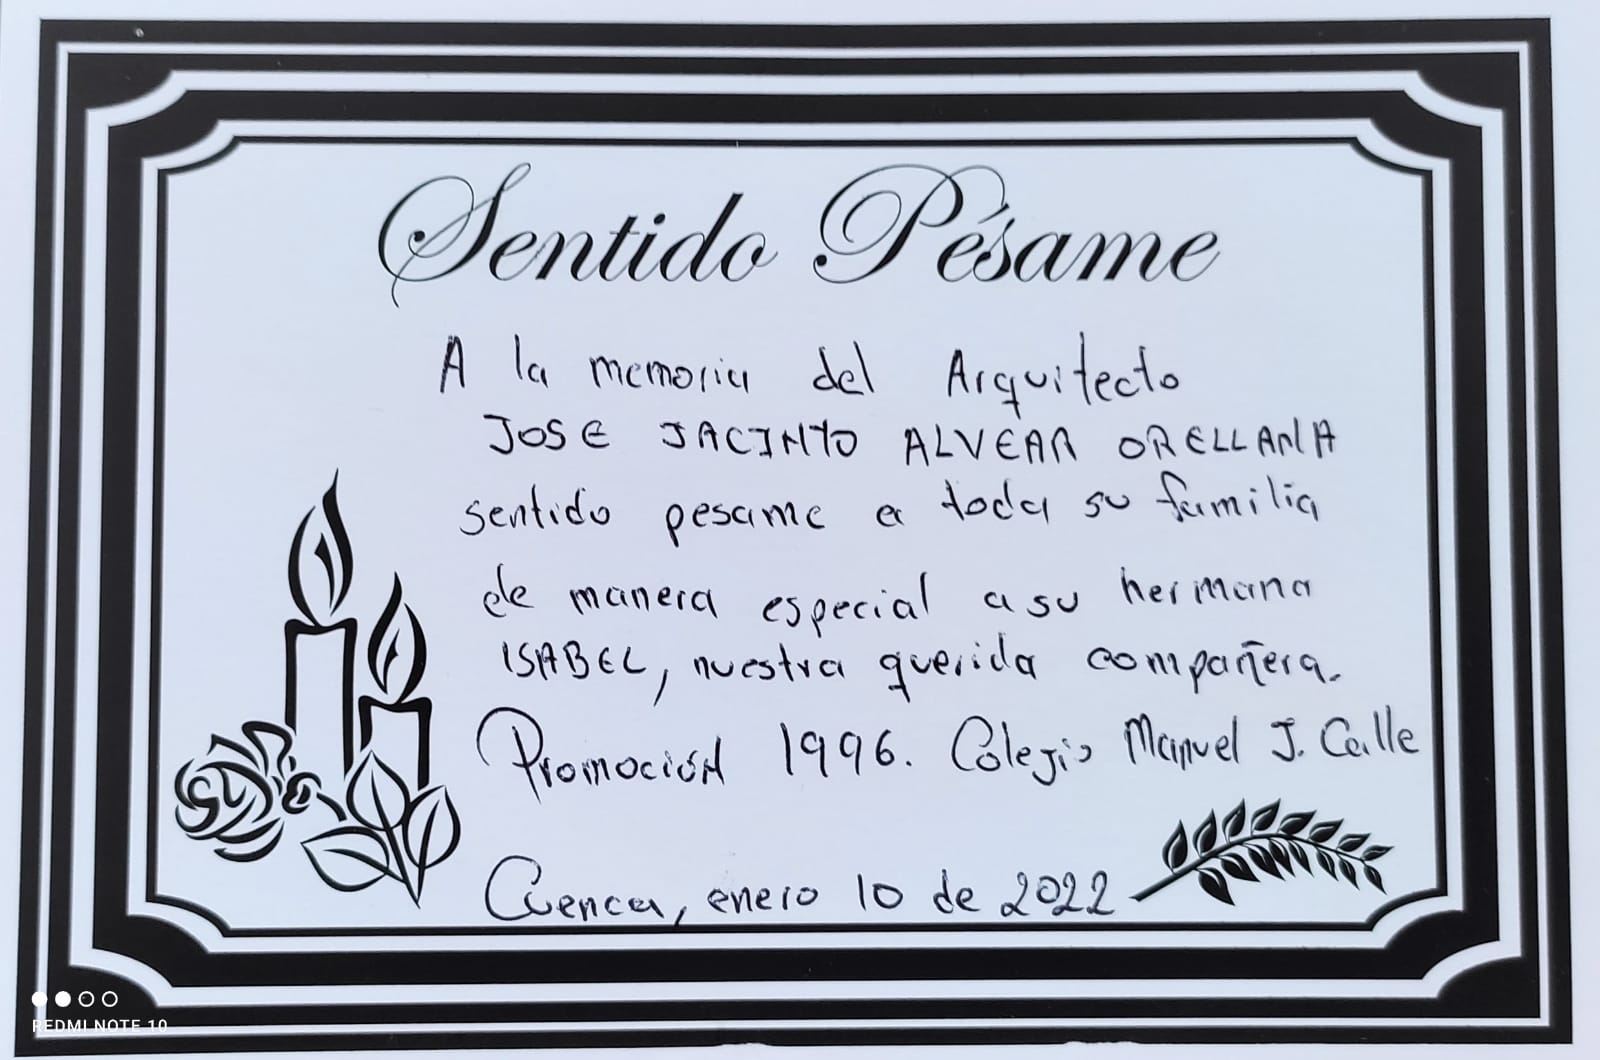 Sentido Pésame
A la memoria del Arquitecto
JOSE JACINTO ALVEAR ORELLANA
sentido pesame a toda su familia
de manera especial a su hermana
ISABEL, nuestra querida compañera.
Promoción 1996. Colegio Manuel J. Calle
Cuenca, enero 10 de 2022
REDMI NOTE 10